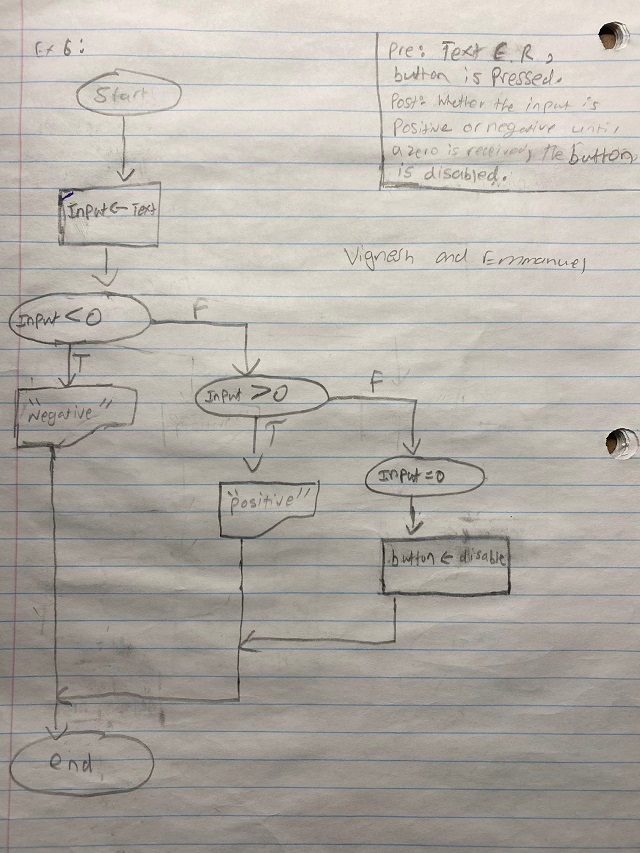 Ex 6:
Pre: Text ∈ R,
button is Pressed.
Post: Whether the input is
Positive or negative until
a zero is received, the button
is disabled.
Start
Input ← Text
Vignesh and Emmanuel
Input < 0
F
T
"Negative"
Input > 0
F
T
"positive"
Input = 0
button ← disable
end